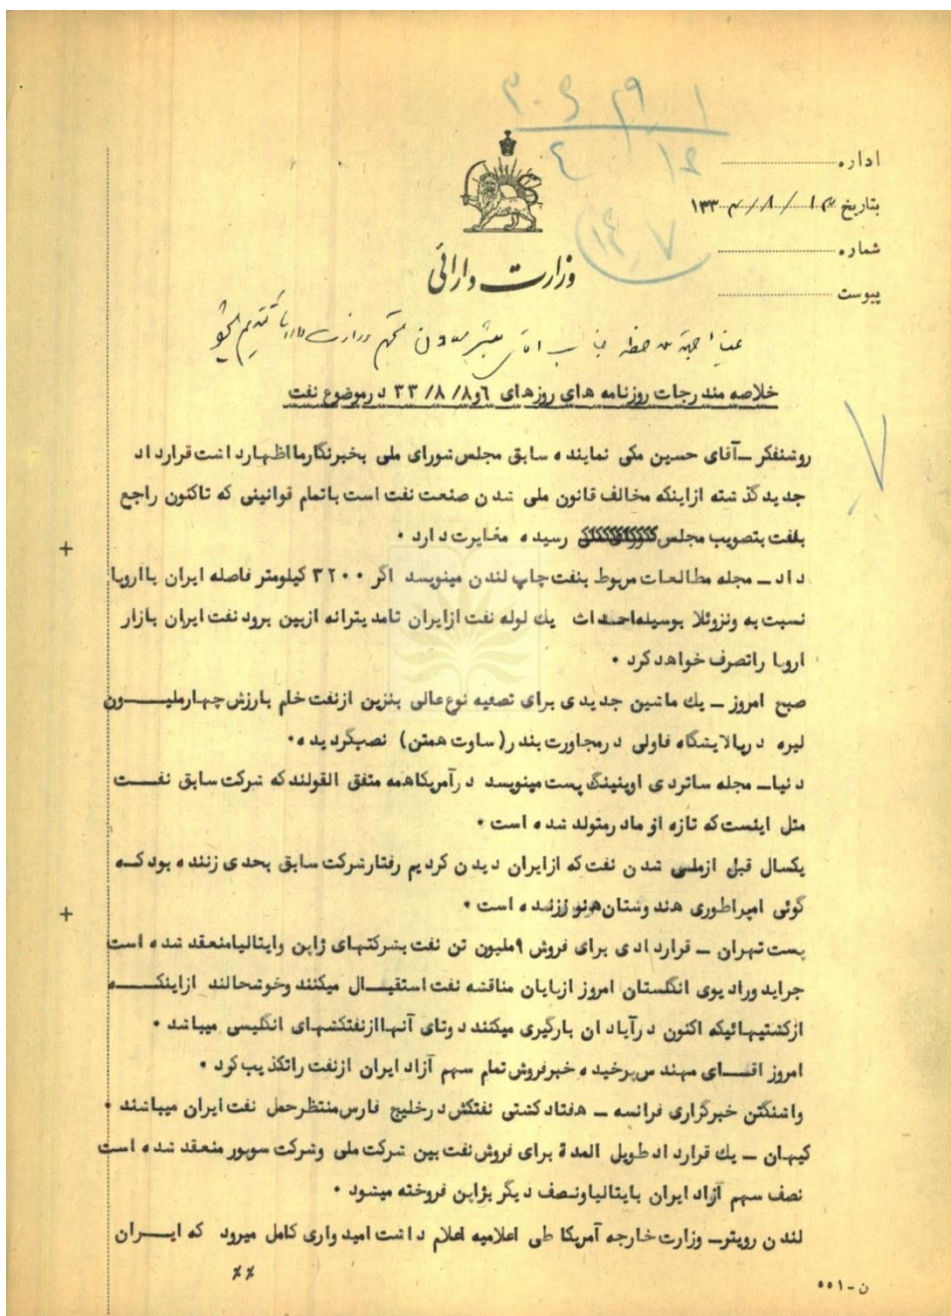 ۳۰۶۲۹۰۱
۴ ۱۶
۱۴۰۷
اداره
بتاریخ ۱۳ / ۸ / ۱۳۳۳
شماره
پیوست
وزارت دارائی
عیناً جهة ملاحظه جناب آقای مبشر معاون محترم وزارت دارائی تقدیم میشود
خلاصه مندرجات روزنامه های روزهای ٦و۸/ ۸/ ۳۳ درموضوع نفت
روشنفکر ــ آقای حسین مکی نماینده سابق مجلس شورای ملی بخبرنگارما اظهارداشت قرارداد
جدید گذشته ازاینکه مخالف قانون ملی شدن صنعت نفت است باتمام قوانینی که تاکنون راجع
بنفت بتصویب مجلس رسیده مغایرت دارد ۰
داد ــ مجله مطالعات مربوط بنفت چاپ لندن مینویسد اگر ۳۲۰۰ کیلومتر فاصله ایران بااروپا
نسبت به ونزوئلا بوسیله احداث یك لوله نفت ازایران تامدیترانه ازبین برود نفت ایران بازار
اروپا راتصرف خواهد کرد ۰
صبح امروز ــ یك ماشین جدیدی برای تصفیه نوع عالی بنزین ازنفت خام بارزش چهارملیــون
لیره درپالایشگاه فاولی درمجاورت بندر( ساوت همتن ) نصب گردیده ۰
دنیا ــ مجله ساتردی اوینینگ پست مینویسد درآمریکا همه متفق القولند که شرکت سابق نفــت
مثل اینست که تازه از مادرمتولد شده است ۰
یکسال قبل ازملی شدن نفت که ازایران دیدن کردیم رفتارشرکت سابق بحدی زننده بود کــه
گوئی امپراطوری هندوستان هنوز زنده است ۰
پست تهران ــ قراردادی برای فروش ۹ملیون تن نفت بشرکتهای ژاپن وایتالیا منعقد شده است
جراید ورادیوی انگلستان امروز ازپایان مناقشه نفت استقبــال میکنند وخوشحالند ازاینکــه
ازکشتیهائیکه اکنون درآبادان بارگیری میکنند دوتای آنها ازنفتکشهای انگلیسی میباشد ۰
امروز اقــای مهندس پرخیده خبرفروش تمام سهم آزاد ایران ازنفت راتکذیب کرد ۰
واشنگتن خبرگزاری فرانسه ــ هفتاد کشتی نفتکش درخلیج فارس منتظرحمل نفت ایران میباشند ۰
کیهان ــ یك قرارداد طویل المدة برای فروش نفت بین شرکت ملی وشرکت سوپور منعقد شده است
نصف سهم آزاد ایران بایتالیا ونصف دیگر بژاپن فروخته میشود ۰
لندن رویتر ــ وزارت خارجه آمریکا طی اعلامیه اعلام داشت امیدواری کامل میرود که ایــران
٪٪
ن ــ ۵۵۱